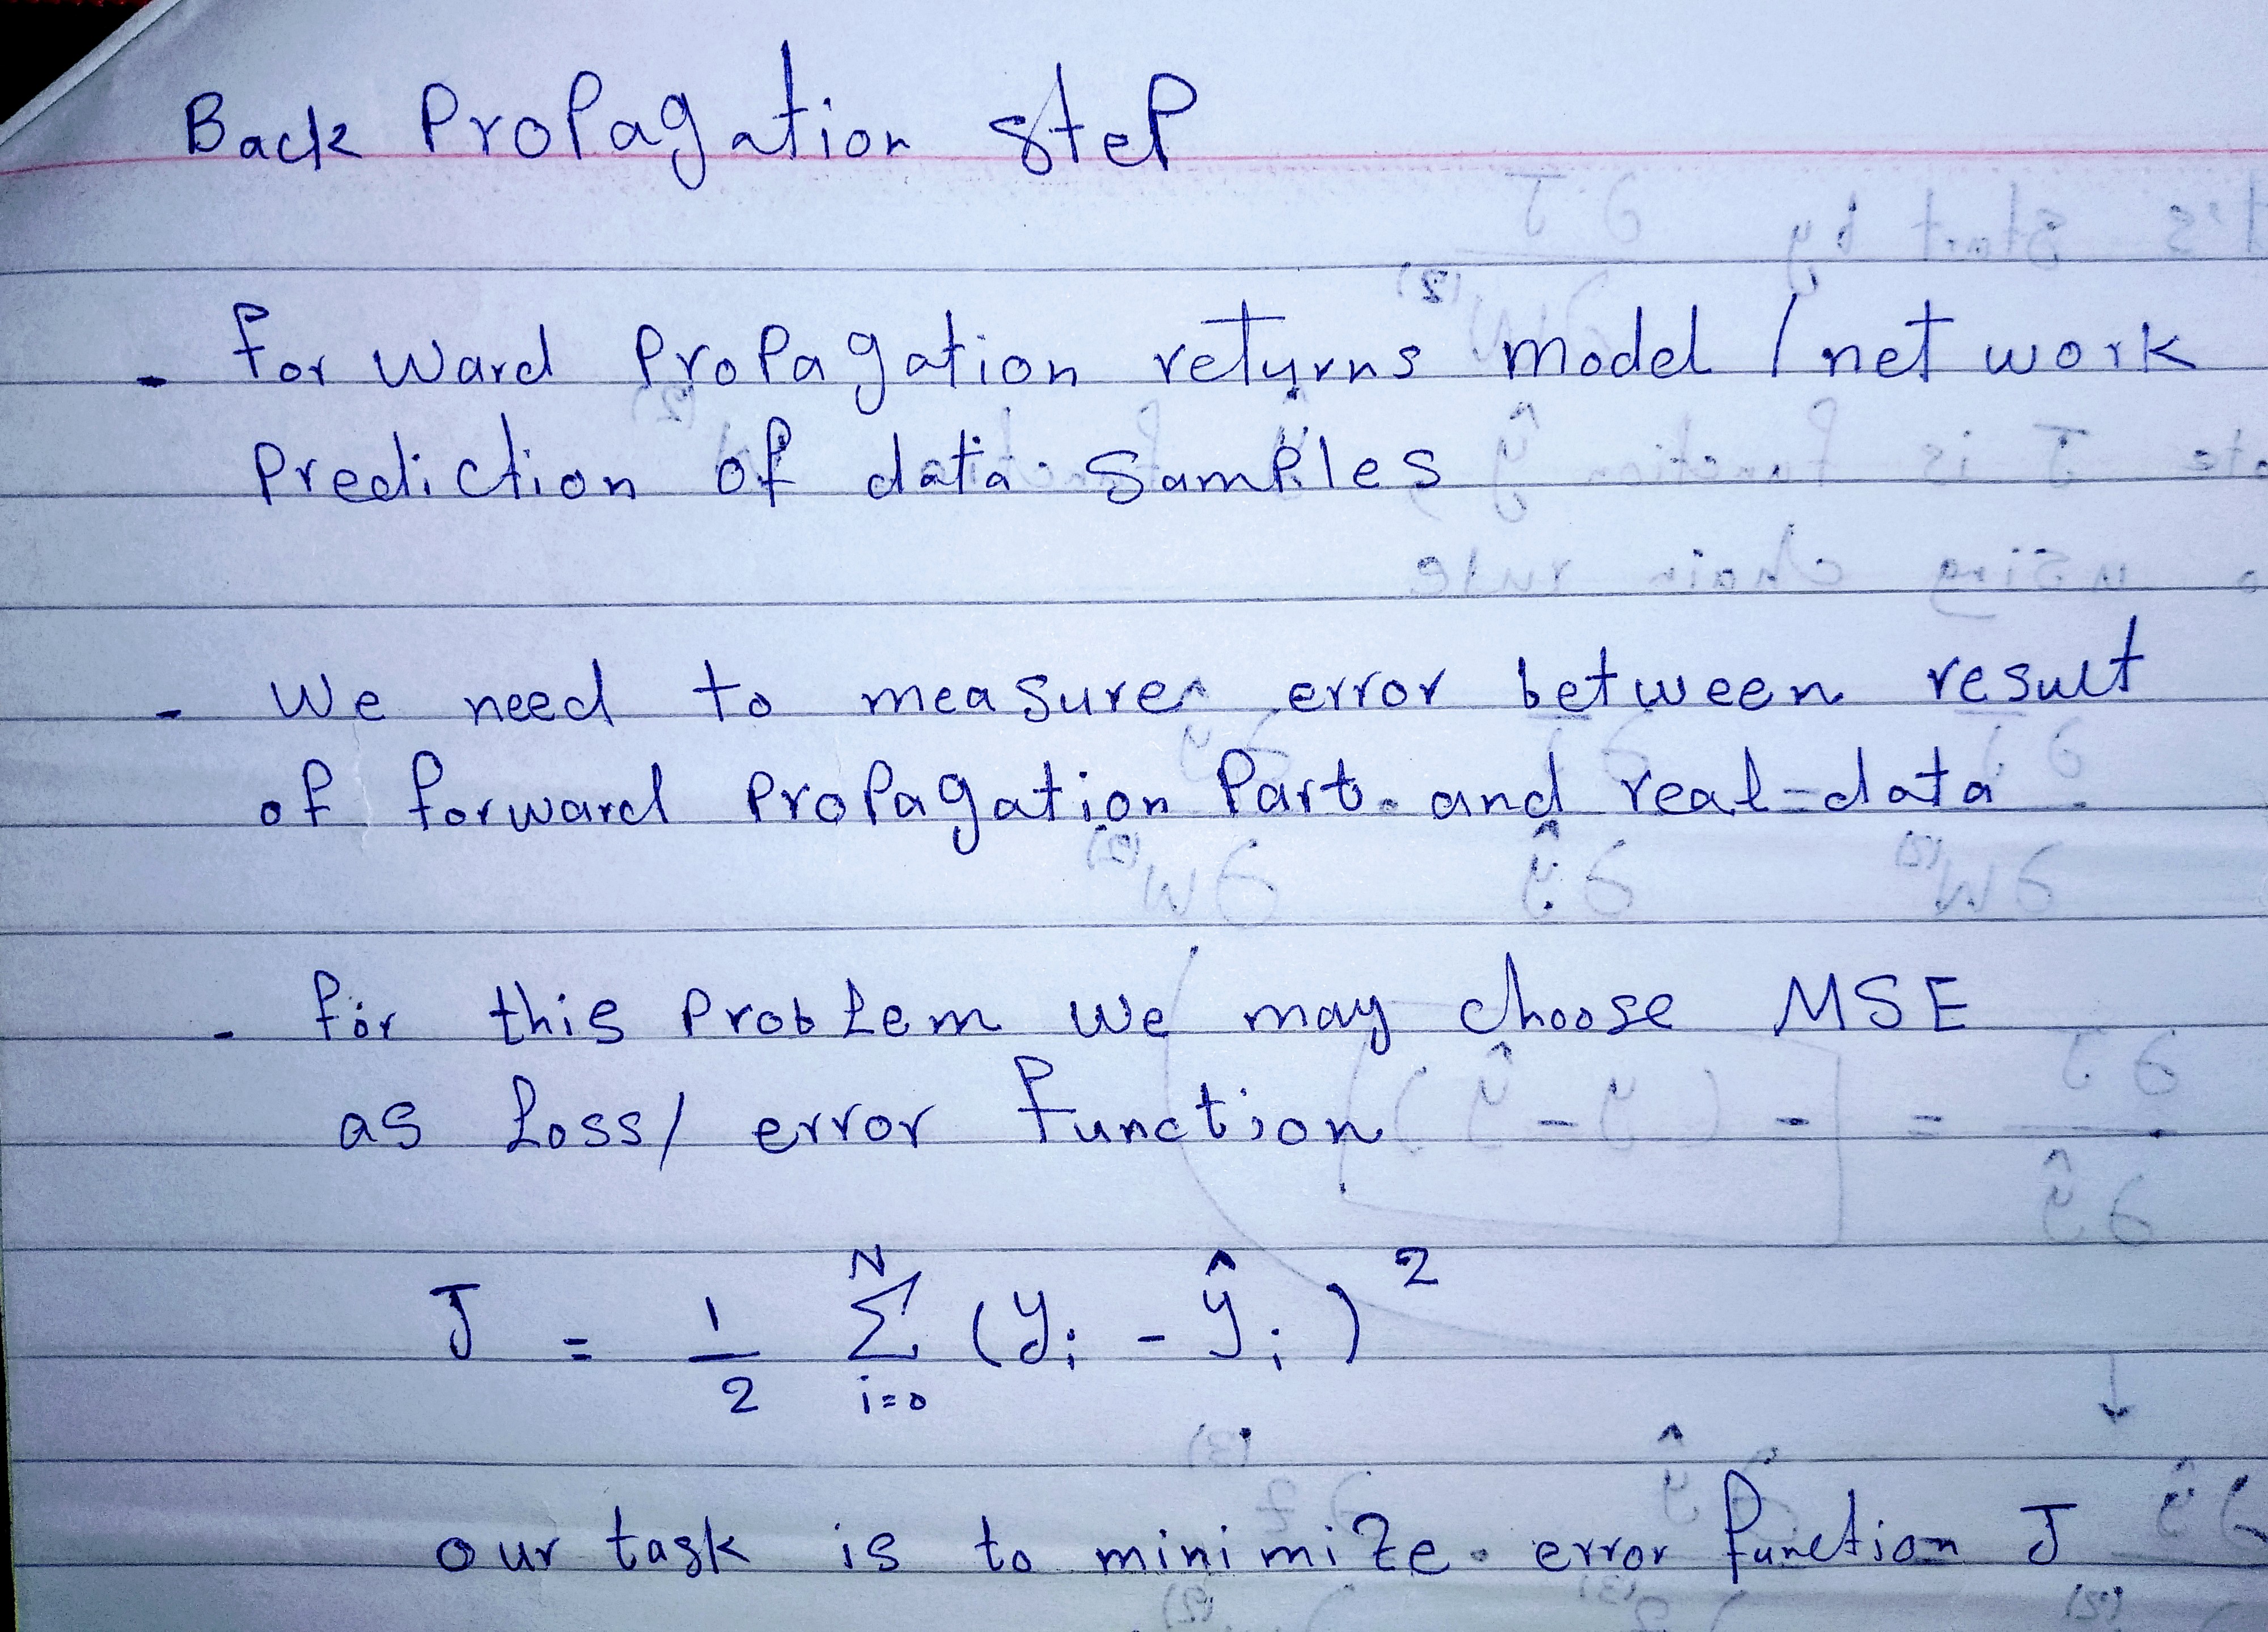 Back Propagation step
- forward propagation returns model / network
prediction of data samples
- We need to measure error between result
of forward propagation part and real-data.
- for this problem we may choose MSE
as Loss/ error function
J = 1/2 Σ_{i=0}^{N} (y_i - ŷ_i)^2
our task is to minimize error function J